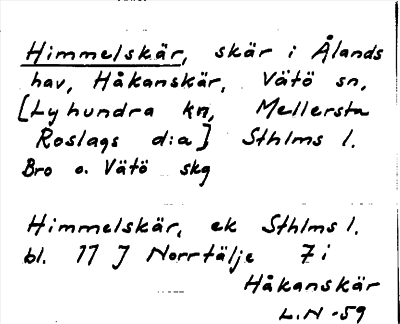 Himmelskär, skär i Ålands
hav, Håkanskär, Vätö sn,
[Lyhundra kn, Mellersta
Roslags d:a] Sthlms l.
Bro o. Vätö skg
Himmelskär, ek Sthlms l.
bl. 11 J Norrtälje 7 i
Håkanskär
L.N -59